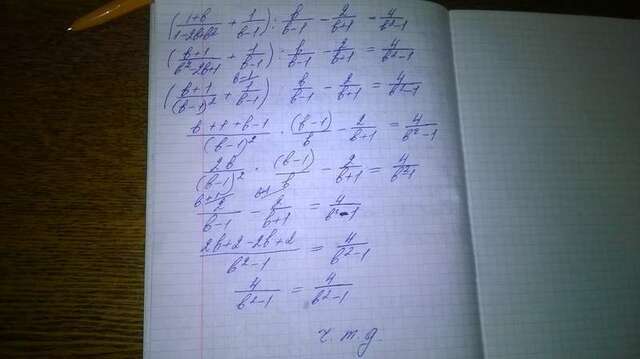 (\frac{1+b}{1-2b+b^2} + \frac{1}{b-1}) : \frac{b}{b-1} - \frac{2}{b+1} = \frac{4}{b^2-1}
(\frac{b+1}{b^2-2b+1} + \frac{1}{b-1}) : \frac{b}{b-1} - \frac{2}{b+1} = \frac{4}{b^2-1}
(\frac{b+1}{(b-1)^2} + \frac{b-1}{1}{b-1}) : \frac{b}{b-1} - \frac{2}{b+1} = \frac{4}{b^2-1}
\frac{b+1+b-1}{(b-1)^2} \cdot \frac{(b-1)}{b} - \frac{2}{b+1} = \frac{4}{b^2-1}
\frac{2b}{(b-1)^2} \cdot \frac{(b-1)}{b} - \frac{2}{b+1} = \frac{4}{b^2-1}
b+1 \frac{2}{b-1} - b-1 \frac{2}{b+1} = \frac{4}{b^2-1}
\frac{2b+2-2b+2}{b^2-1} = \frac{4}{b^2-1}
\frac{4}{b^2-1} = \frac{4}{b^2-1}
ч.т.д.